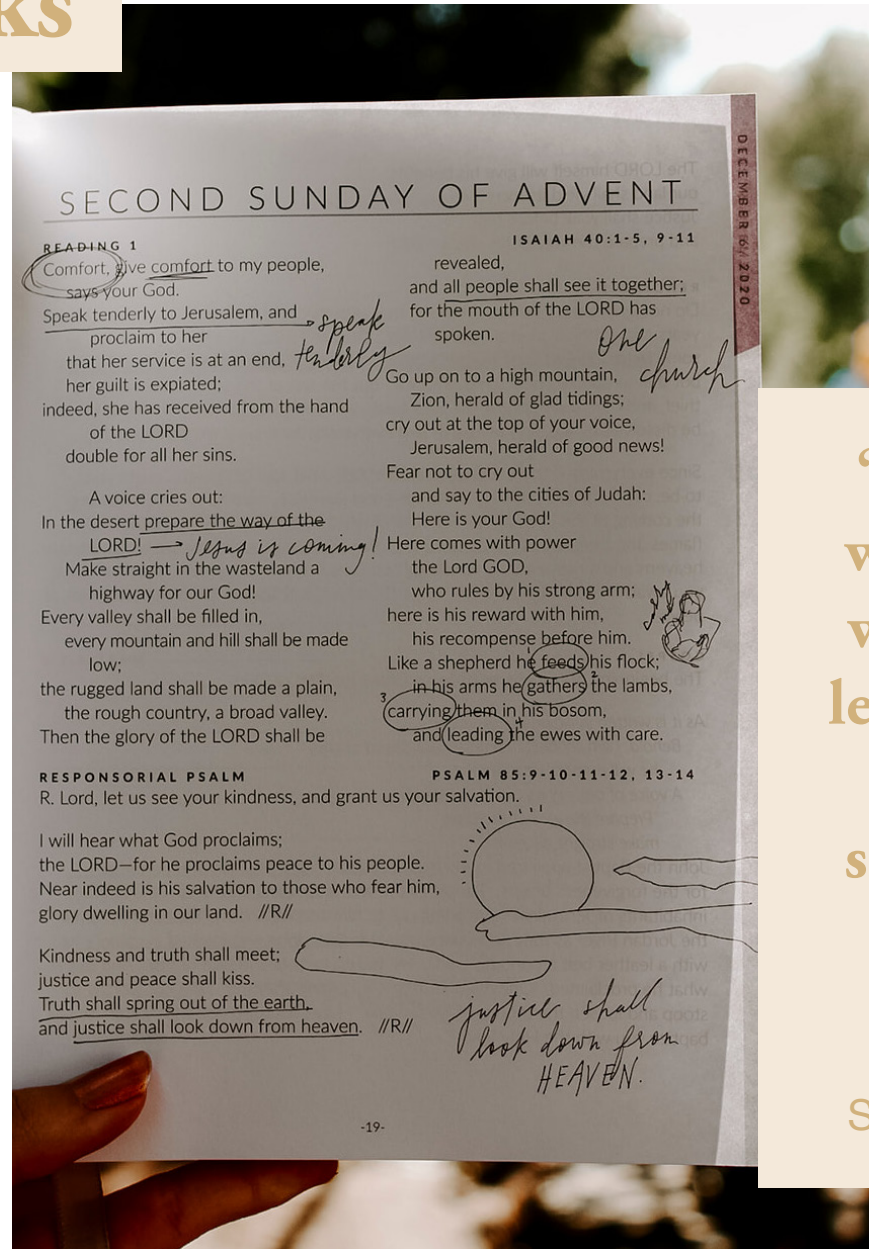 ks
DECEMBER 6// 2020
SECOND SUNDAY OF ADVENT
READING 1
ISAIAH 40:1-5, 9-11
Comfort, give comfort to my people,
says your God.
Speak tenderly to Jerusalem, and
proclaim to her
that her service is at an end,
her guilt is expiated;
indeed, she has received from the hand
of the LORD
double for all her sins.
speak
tenderly
A voice cries out:
In the desert prepare the way of the
LORD! → Jesus is coming!
Make straight in the wasteland a
highway for our God!
Every valley shall be filled in,
every mountain and hill shall be made
low;
the rugged land shall be made a plain,
the rough country, a broad valley.
Then the glory of the LORD shall be
revealed,
and all people shall see it together;
for the mouth of the LORD has
spoken.
one
church
Go up on to a high mountain,
Zion, herald of glad tidings;
cry out at the top of your voice,
Jerusalem, herald of good news!
Fear not to cry out
and say to the cities of Judah:
Here is your God!
Here comes with power
the Lord GOD,
who rules by his strong arm;
here is his reward with him,
his recompense before him.
Like a shepherd he 1 feeds his flock;
in his arms he gathers 2 the lambs,
3 carrying them in his bosom,
and leading 4 the ewes with care.
RESPONSORIAL PSALM
PSALM 85:9-10-11-12, 13-14
R. Lord, let us see your kindness, and grant us your salvation.
I will hear what God proclaims;
the LORD—for he proclaims peace to his people.
Near indeed is his salvation to those who fear him,
glory dwelling in our land. //R//
Kindness and truth shall meet;
justice and peace shall kiss.
Truth shall spring out of the earth,
and justice shall look down from heaven. //R//
justice shall
look down from
HEAVEN.
-19-
“
w
w
le
s
S